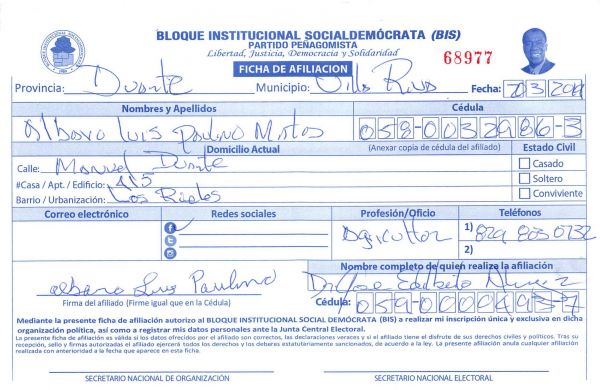 BLOQUE INSTITUCIONAL SOCIALDEMÓCRATA (BIS)
PARTIDO PEÑAGOMISTA
Libertad, Justicia, Democracia y Solidaridad
68977
FICHA DE AFILIACION
Provincia: Duarte Municipio: Villa Riva Fecha:
Nombres y Apellidos Cédula
Albaro Luis Paulino Matos 058-0032986-3
Domicilio Actual (Anexar copia de cédula del afiliado) Estado Civil
Calle: Manuel Duarte Casado
#Casa / Apt. / Edificio: Soltero
Barrio / Urbanización: Los Rieles Conviviente
Correo electrónico Redes sociales Profesión/Oficio Teléfonos
Agricultor 1) 829 803 0732
2)
Nombre completo de quien realiza la afiliación
albaro Luis Paulino Dr. Jose Edilberto
Firma del afiliado (Firme igual que en la Cédula) Cédula:
Mediante la presente ficha de afiliación autorizo al BLOQUE INSTITUCIONAL SOCIAL DEMÓCRATA (BIS) a realizar mi inscripción única y exclusiva en dicha
organización política, así como a registrar mis datos personales ante la Junta Central Electoral.
La presente ficha de afiliación es válida si los datos ofrecidos por el afiliado son correctos, las declaraciones veraces y si el afiliado tiene el disfrute de sus derechos civiles y políticos. Tras su
recepción, sello y firmas autorizadas el afiliado ejercerá todos los derechos y los deberes estatutariamente sancionados, de acuerdo a la ley. La presente afiliación anula cualquier afiliación
realizada con anterioridad a la fecha que aparece en esta ficha.
SECRETARIO NACIONAL DE ORGANIZACIÓN SECRETARIO NACIONAL ELECTORAL